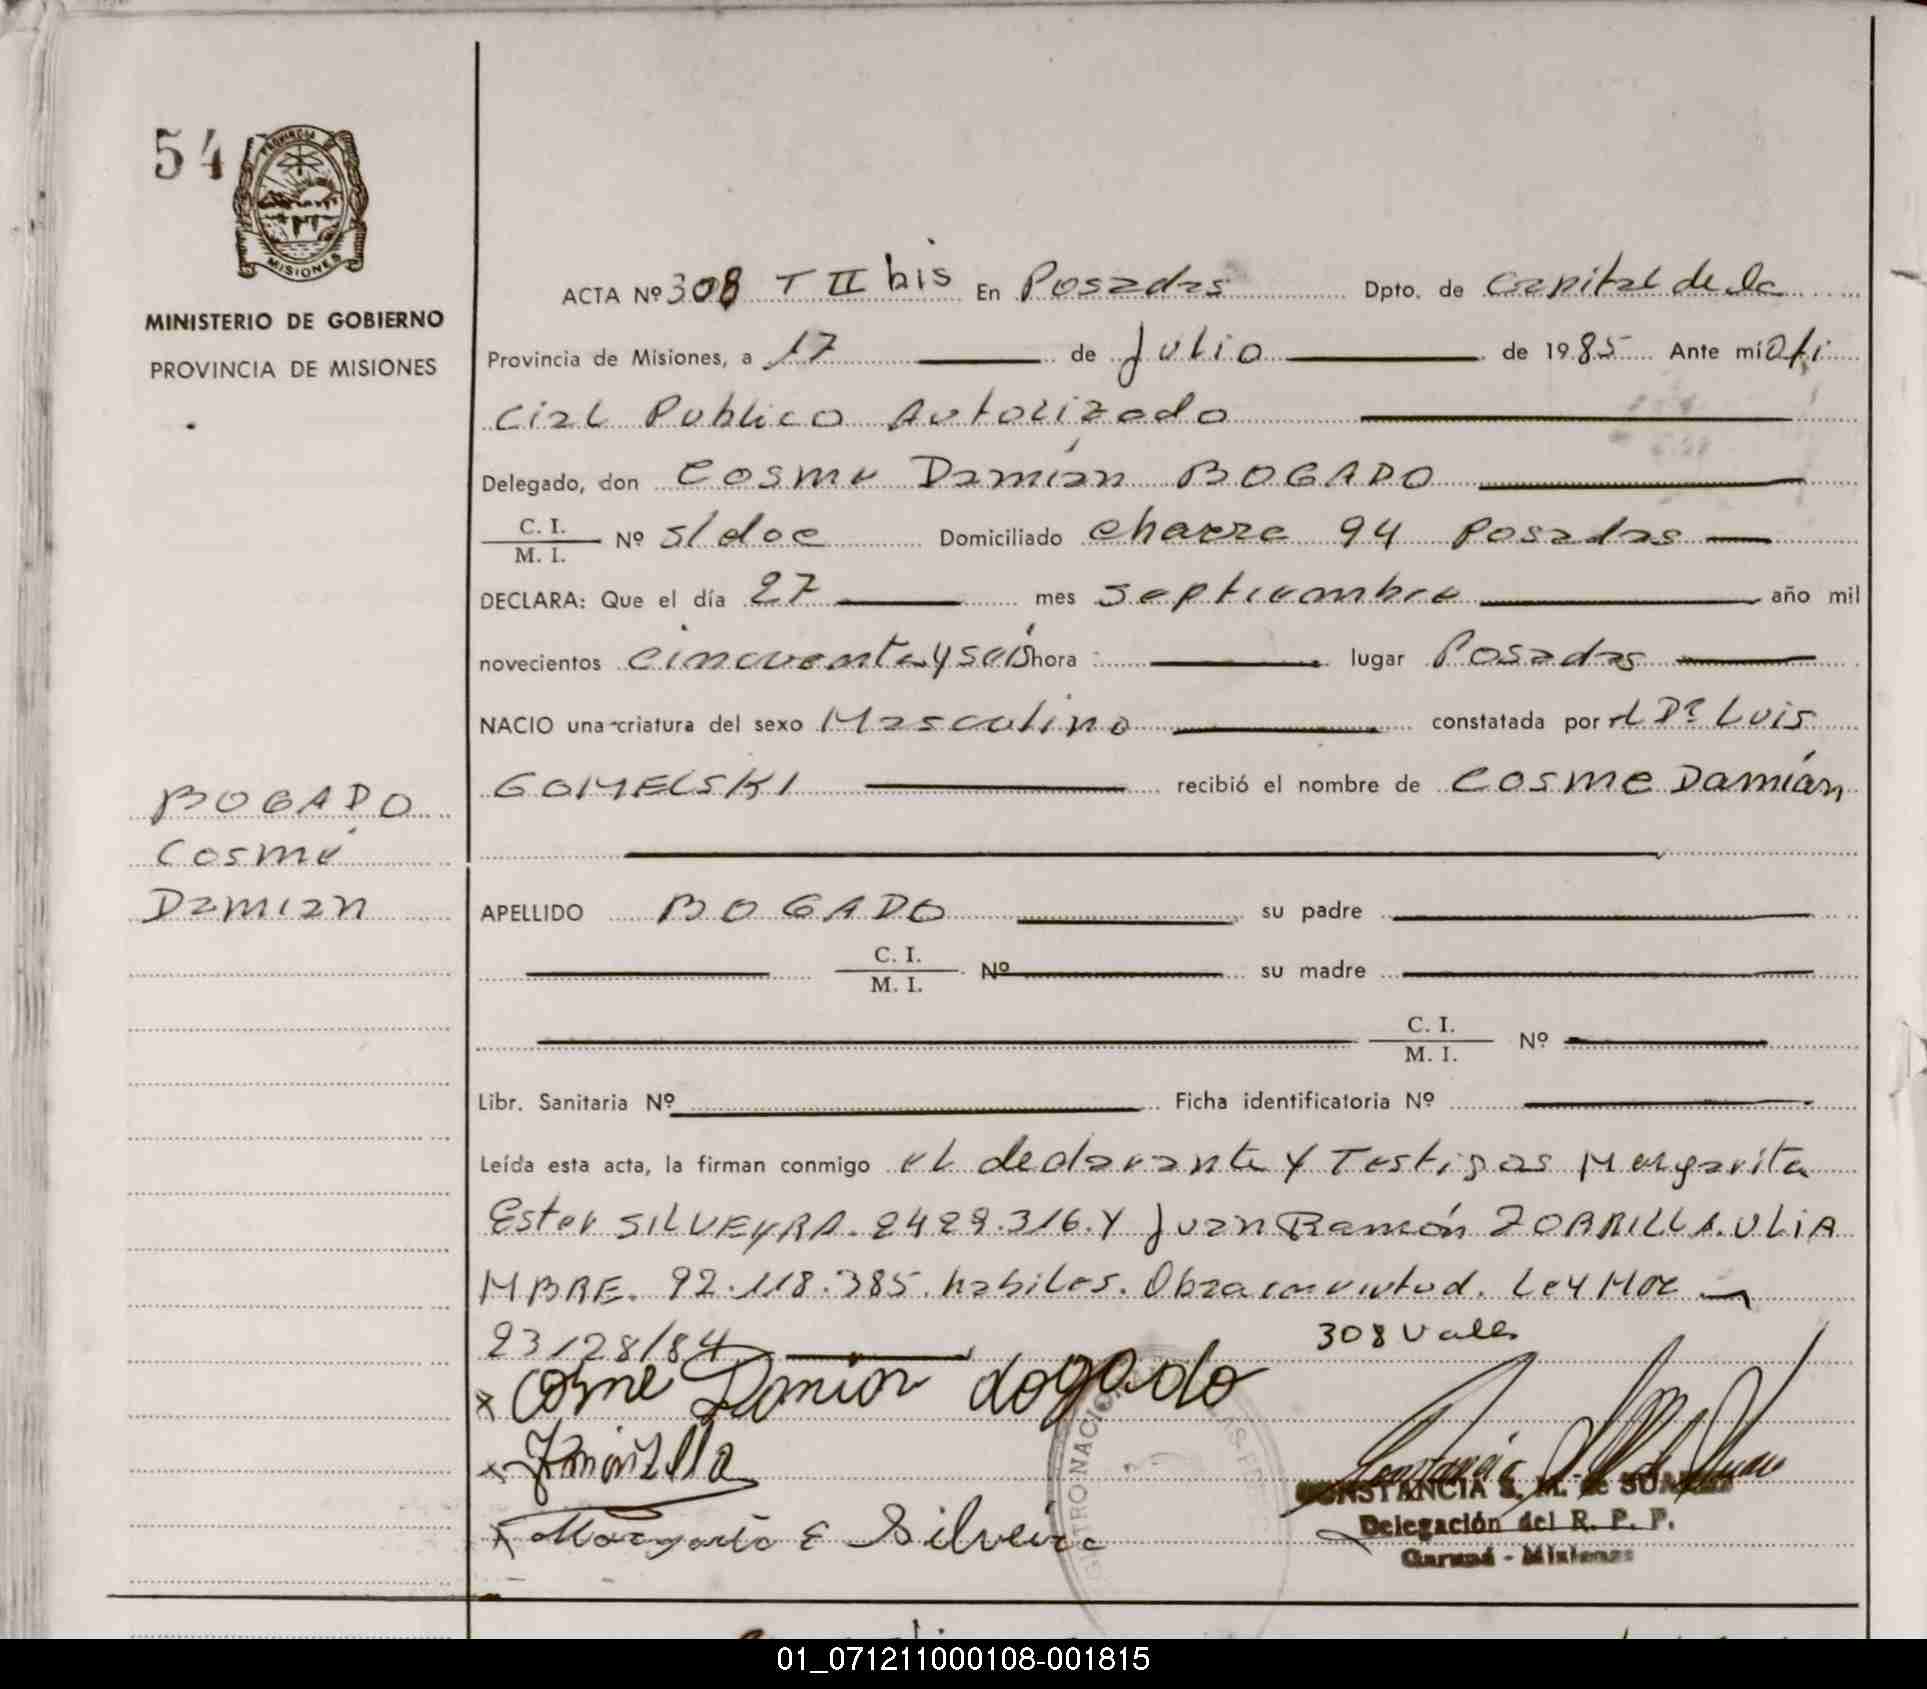 54
PROVINCIA
MISIONES
MINISTERIO DE GOBIERNO
PROVINCIA DE MISIONES
BOGADO
Cosme
Damian
ACTA Nº 308 T II bis En Posadas Dpto. de Capital de la
Provincia de Misiones, a 17 de Julio de 1985 Ante mí Ofi
cial Publico Autorizado
Delegado, don Cosme Damián BOGADO
C. I.
M. I. Nº s/doc Domiciliado Charra 94 Posadas
DECLARA: Que el día 27 mes septiembre año mil
novecientos cincuenta y seis hora lugar Posadas
NACIO una criatura del sexo Masculino constatada por el Dr Luis
GOMELSKI recibió el nombre de Cosme Damián
APELLIDO BOGADO su padre
C. I.
M. I. Nº su madre
C. I.
M. I. Nº
Libr. Sanitaria Nº Ficha identificatoria Nº
Leída esta acta, la firman conmigo el declarante y Testigos Margarita
Ester SILVEYRA. 2429.316. Y Juan Ramón ZORRILLA. ULIA
MBRE. 92.118.385. habiles. Obra en virtud. Ley Nac
23128/84 308 Vale
x Cosme Damian Bogado
x Zorrilla
x Margarita E Silveira
CONSTANCIA S. M. de
Delegación del R. P. P.
Garupá - Misiones
01_071211000108-001815